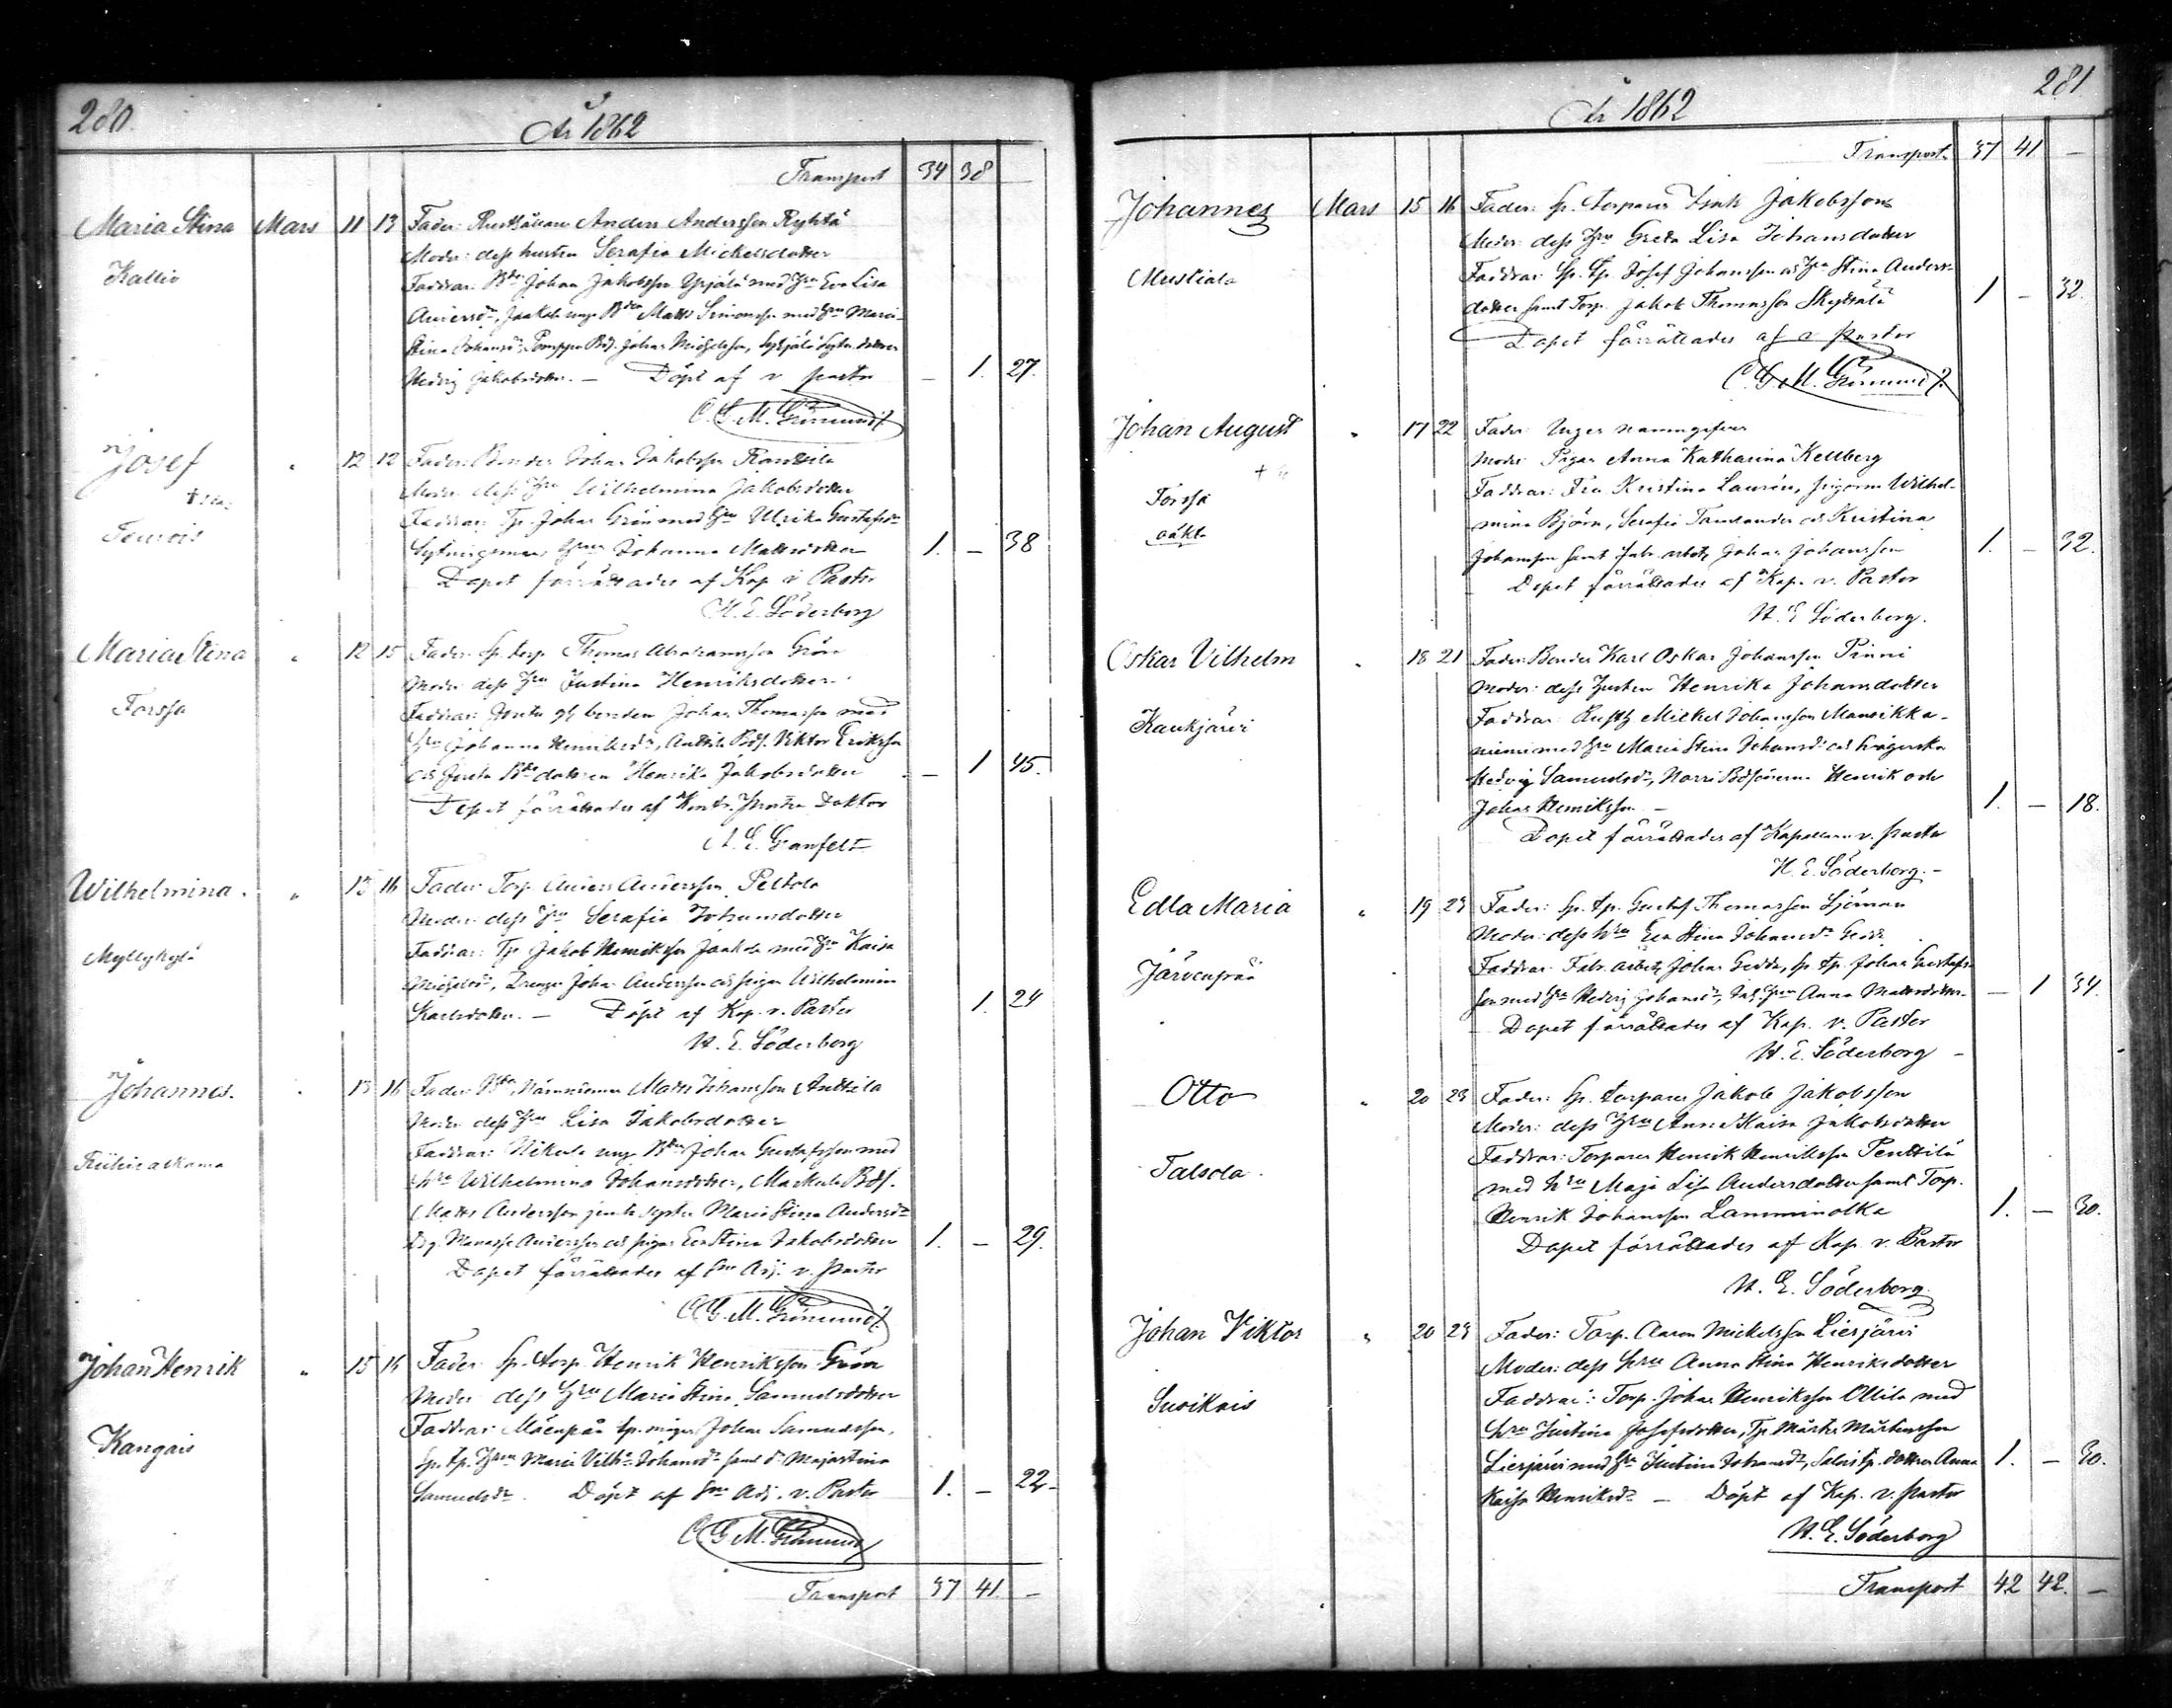 280.
År 1862
Transport 34 38
Maria Stina Mars 11 13 Fader: Rusthållare Anders Andersson Ryhtä
Moder: dess hustru Serafia Mickelsdotter
Kallio Faddrar: Bdn Johan Jakobsson Ypäjä med Hru Eva Lisa
Andersdr, Jaakola unge Bdn Matts Simonsson med Hru Maria
Stina Johansdr, Bds. Johan Michelsson,
Hedvig Jakobsdotter. — Döpt af v. pastor — 1. 27.
C. G. M. Grönmund
Josef " 12 12 Fader: Bonden Johan Jakobsson Ranttila
Moder: dess Hru Wilhelmina Jakobsdotter
Faddrar: Tp. Johan Grön med Hru Ulrika Gustafsdr
Hru Johanna Mattsdotter 1. — 38
Dopet förrättades af Kap. v. Pastor
H. E. Söderborg
Maria Stina " 12 15 Fader: Sp. torp. Thomas Abrahamsson Grön
Moder: dess Hru Justina Henriksdotter
Forssa Faddrar: bonden Johan Thomasson med
Hru Johanna Henriksdr, Anttila Bds. Viktor Eriksson
och dottren Henrika Jakobsdotter — 1 45.
Dopet förrättades af Kontr. Prosten Doktor
A. E. Granfelt
Wilhelmina. " 13 16 Fader: Torp. Anders Andersson Peltola
Moder: dess Hru Serafia Johansdotter
Myllykylä Faddrar: Tp. Jakob Henriksson Jaakola med Hru Kaisa
Michelsdr, Drengen Johan Andersson och pigan Wilhelmina
Karlsdotter. — Döpt af Kap. v. Pastor 1. 24
H. E. Söderborg
Johannes. " 13 16 Fader: Bdn, Nämndeman Matts Johansson Anttila
Moder: dess Hru Lisa Jakobsdotter
Faddrar: Nikula unge Bdn Johan Gustafsson med
Hru Wilhelmina Johansdotter, Markula Bds.
Matts Andersson jemte syster Maria Stina Andersdr
Drg. Andersson och pigan Eva Stina Jakobsdotter 1. — 29.
Dopet förrättades af Adj. v. Pastor
C. G. M. Grönmund
Johan Henrik " 15 16 Fader: Sp. torp. Henrik Henriksson Grön
Moder: dess Hru Maria Stina Samuelsdotter
Kangais Faddrar: Mäenpää Johan Samuelsson,
Sp. tp. Hru Maria Vilh. Johansdr samt dr Maja Stina
Samuelsdr. Döpt af Adj. v. Pastor 1. — 22.
C. G. M. Grönmund
Transport 37 41. —
281
År 1862
Transport 37 41 —
Johannes Mars 15 16 Fader: Sp. torparen Isak Jakobsson
Moder: dess Hru Greta Lisa Johansdotter
Mustiala Faddrar: Sp. Tp. Josef Johansson och Hru Stina Anders-
dotter samt Torp. Jakob Thomasson 1 — 32.
Dopet förrättades af v. pastor
C. G. M. Grönmund
Johan August " 17 22 Fader: Ingen namngifven
Moder: Pigan Anna Katharina Kellberg
Forssa Faddrar: Fru Kristina Laurén, pigorna Wilhel-
oäkta mina Björn, Serafia och Kristina
Johansson samt fabr. arbet. Johan Johansson 1. — 32.
Dopet förrättades af Kap. v. Pastor
H. E. Söderborg.
Oskar Vilhelm " 18 21 Fader: Bonden Karl Oskar Johansson Pinni
Moder: dess hustru Henrika Johansdotter
Kaukjärvi Faddrar: Rusth. Mickel Johansson Mansikka-
niemi med Hru Maria Stina Johansdr och
Hedvig Samuelsdr, Norri Bdsönerna Henrik och
Johan Henriksson — 1. — 18.
Dopet förrättades af Kapellanen v. pastor
H. E. Söderborg. —
Edla Maria " 19 23 Fader: Sp. tp. Gustaf Thomasson Sjöman
Moder: dess Hru Eva Stina Johansdr
Järvenpää Faddrar: Fabr. arbet. Johan Gedda, Sp. tp. Johan Gustafs-
son med Hru Hedvig Johansdr, Hru Anna Mattsdotter — 1 34.
Dopet förrättades af Kap. v. Pastor
H. E. Söderborg —
Otto " 20 23 Fader: Sp. torparen Jakob Jakobsson
Moder: dess Hru Anna Kaisa Jakobsdotter
Talsola. Faddrar: Torparen Henrik Henriksson Penttilä
med Hru Maja Lisa Andersdotter samt Torp.
Henrik Johansson Lamminolka 1. — 30.
Dopet förrättades af Kap. v. Pastor
H. E. Söderborg.
Johan Viktor " 20 23 Fader: Torp. Aaron Mickelsson Liesjärvi
Moder: dess Hru Anna Stina Henriksdotter
Suvikais Faddrar: Torp. Johan Henriksson Ollila med
Hru Justina Josefsdotter, Tp. Mårten Mårtensson
Liesjärvi med Hru Justina Johansdr, tp. dottren Anna 1. — 30.
Kaisa Henriksdr — Döpt af Kap. v. pastor
H. E. Söderborg
Transport 42 42. —